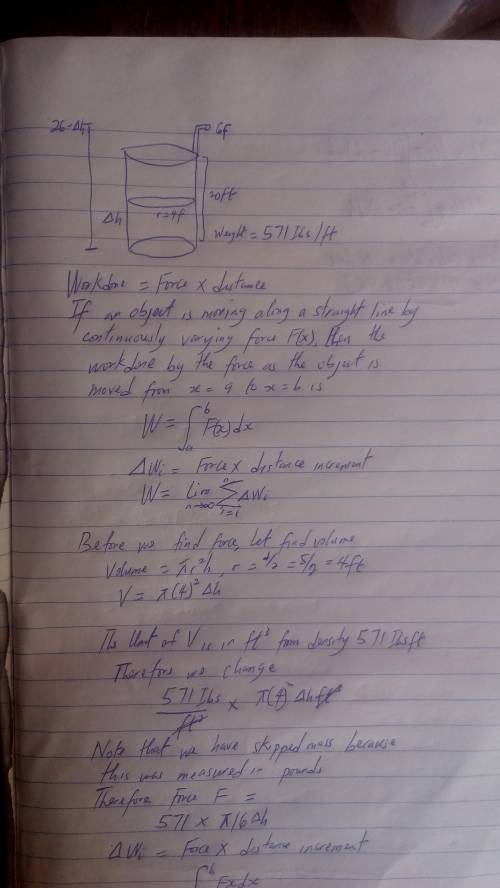 26-Δh
6f
20ft
Δh
r=4f
Weight = 571 Ibs/ft
Workdone = Force × distance
If an object is moving along a straight line by
continuously varying force F(x), then the
workdone by the force as the object is
moved from x = a to x = b is
W = ∫_a^b F(x)dx
ΔWi = Force × distance increment
W = Lim n→∞ Σ_{i=1}^n ΔWi
Before we find force, let find volume
Volume = πr²h, r = d/2 = 8/2 = 4ft
V = π(4)² Δh
The Unit of V is in ft³ from density 571 Ibsft
Therefore we change
571 Ibs/ft³ × π(4)² Δh ft³
Note that we have skipped mass because
this was measured in pounds
Therefore Force F =
571 × π16Δh
ΔWi = Force × distance increment
∫^b Fxdx